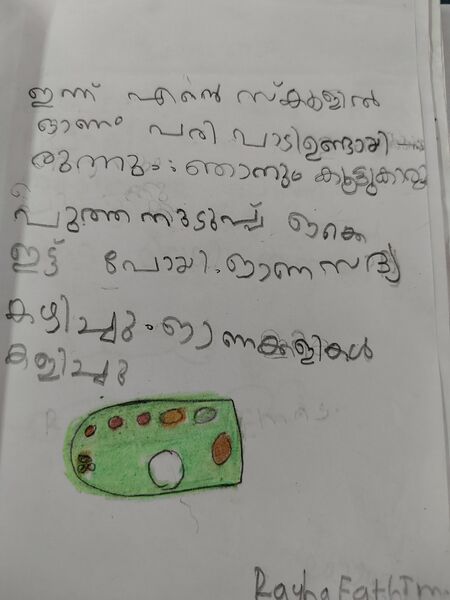 ഇന്ന് എന്റെ സ്കൂളിൽ
ഓണം പരി പാടിഉണ്ടായി
രുന്നു: ഞാനും കൂട്ടുകാരും
പുത്തനുടുപ്പ് ഒക്കെ
ഇട്ട് പോയി. ഓണസദ്യ
കഴിച്ചു. ഓണക്കളികൾ
കളിച്ചു
Rayha Fathim